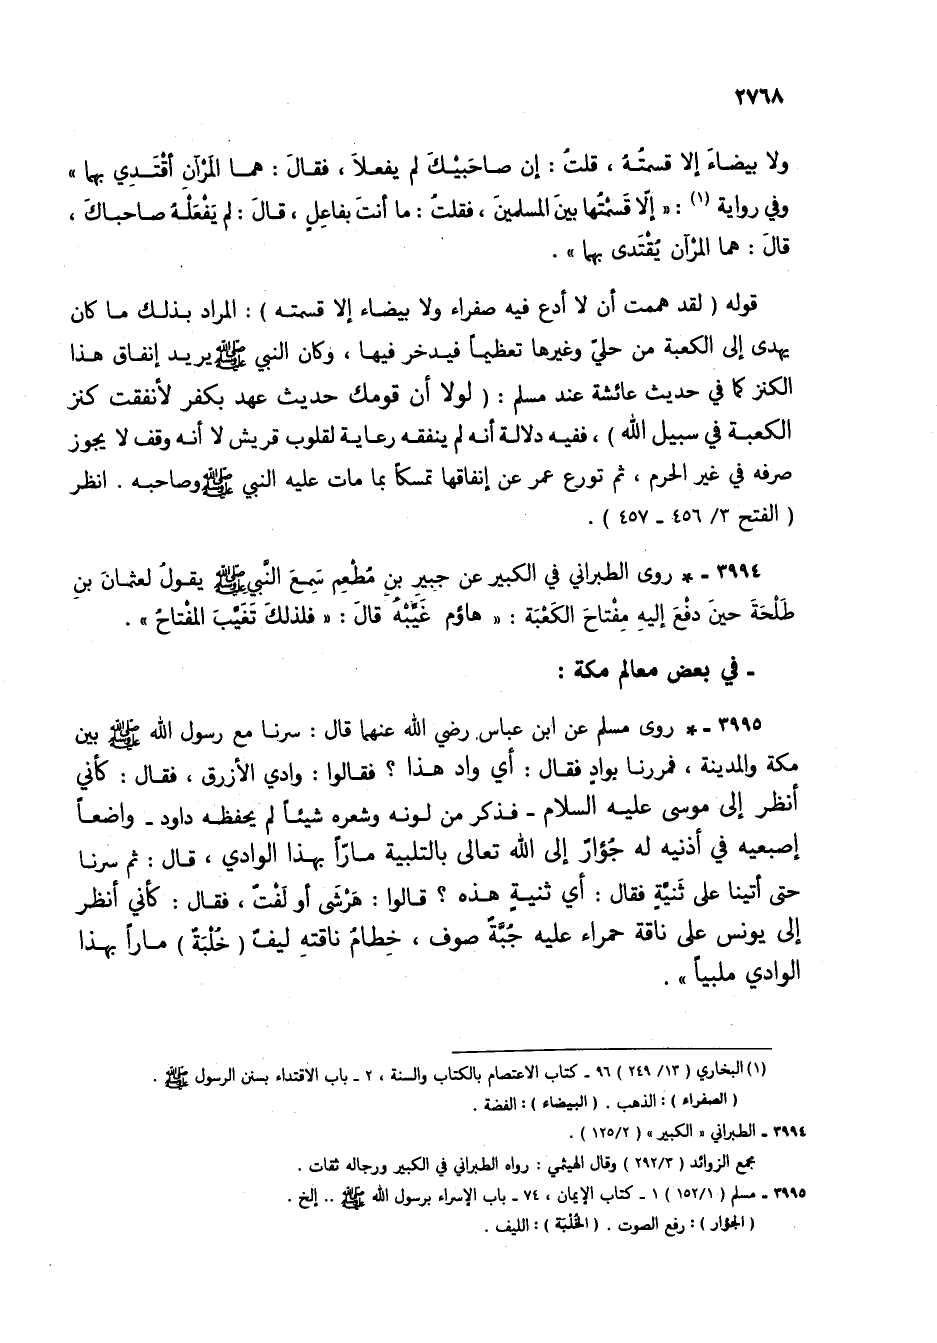 ٢٧٦٨
ولا بيضاءَ إلا قسمتُهُ ، قلتُ : إن صاحَبيْكَ لم يفعلاَ ، فقالَ : هما المَرْآنِ أقْتَدِي بها »
وفي رواية (١) : « إلّا قَسَمْتُها بينَ المسلمين ، فقلتُ : ما أنتَ بفاعِلٍ ، قالَ : لم يَفْعَلْهُ صاحباكَ ،
قالَ : هما المَرْآنِ يُقْتَدى بهما » .
قوله ( لقد هممت أن لا أدع فيه صفراء ولا بيضاء إلا قسمته ) : المراد بذلك ما كان
يهدى إلى الكعبة من حليّ وغيرها تعظيماً فيدخر فيها ، وكان النبي ﷺ يريد إنفاق هذا
الكنز كما في حديث عائشة عند مسلم : ( لولا أن قومك حديث عهد بكفر لأنفقت كنز
الكعبة في سبيل الله ) ، ففيه دلالة أنه لم ينفقه رعاية لقلوب قريش لا أنه وقف لا يجوز
صرفه في غير الحرم ، ثم تورع عمر عن إنفاقها تمسكاً بما مات عليه النبي ﷺ وصاحبه . انظر
( الفتح ٣/ ٤٥٦ - ٤٥٧ ) .
٣٩٩٤ - * روى الطبراني في الكبير عن جبيرِ بنِ مُطْعِمِ سَمِعَ النَّبي ﷺ يقولُ لعثمانَ بنِ
طَلْحَةَ حينَ دفْعَ إليهِ مِفْتاحَ الكَعْبَة : « هاؤم غَيِّبْهُ قالَ : « فلذلكَ تَغَيَّبَ المْفتاحُ » .
- في بعض معالم مكة :
٣٩٩٥ - * روى مسلم عن ابن عباس رضي الله عنهما قال : سرنا مع رسول الله ﷺ بين
مكة والمدينة ، فمررنا بوادٍ فقال : أي واد هذا ؟ فقالوا : وادي الأزرق ، فقال : كأني
أنظر إلى موسى عليه السلام - فذكر من لونه وشعره شيئاً لم يحفظه داود - واضعاً
إصبعيه في أذنيه له جُؤارٌ إلى الله تعالى بالتلبية مارّاً بهذا الوادي ، قال : ثم سرنا
حتى أتينا على ثَنيَّةٍ فقال : أي ثنيةٍ هذه ؟ قالوا : هَرْشَى أو لَفْتٌ ، فقال : كأني أنظر
إلى يونس على ناقة حمراء عليه جُبَّةُ صوف ، خِطامُ ناقتهِ ليفٌ ( خُلْبَةٌ ) ماراً بهذا
الوادي ملبياً » .
(١) البخاري ( ١٣/ ٢٤٩ ) ٩٦ - كتاب الاعتصام بالكتاب والسنة ، ٢ - باب الاقتداء بسنن الرسول ﷺ .
( الصفراء ) : الذهب . ( البيضاء ) : الفضة .
٣٩٩٤ - الطبراني « الكبير » ( ١٢٥/٢ ) .
مجمع الزوائد ( ٢٩٢/٣ ) وقال الهيثمي : رواه الطبراني في الكبير ورجاله ثقات .
٣٩٩٥ - مسلم ( ١٥٢/١ ) ١ - كتاب الإيمان ، ٧٤ - باب الإسراء برسول الله ﷺ .. إلخ .
( الجؤار ) : رفع الصوت . ( الخُلْبَة ) : الليف .